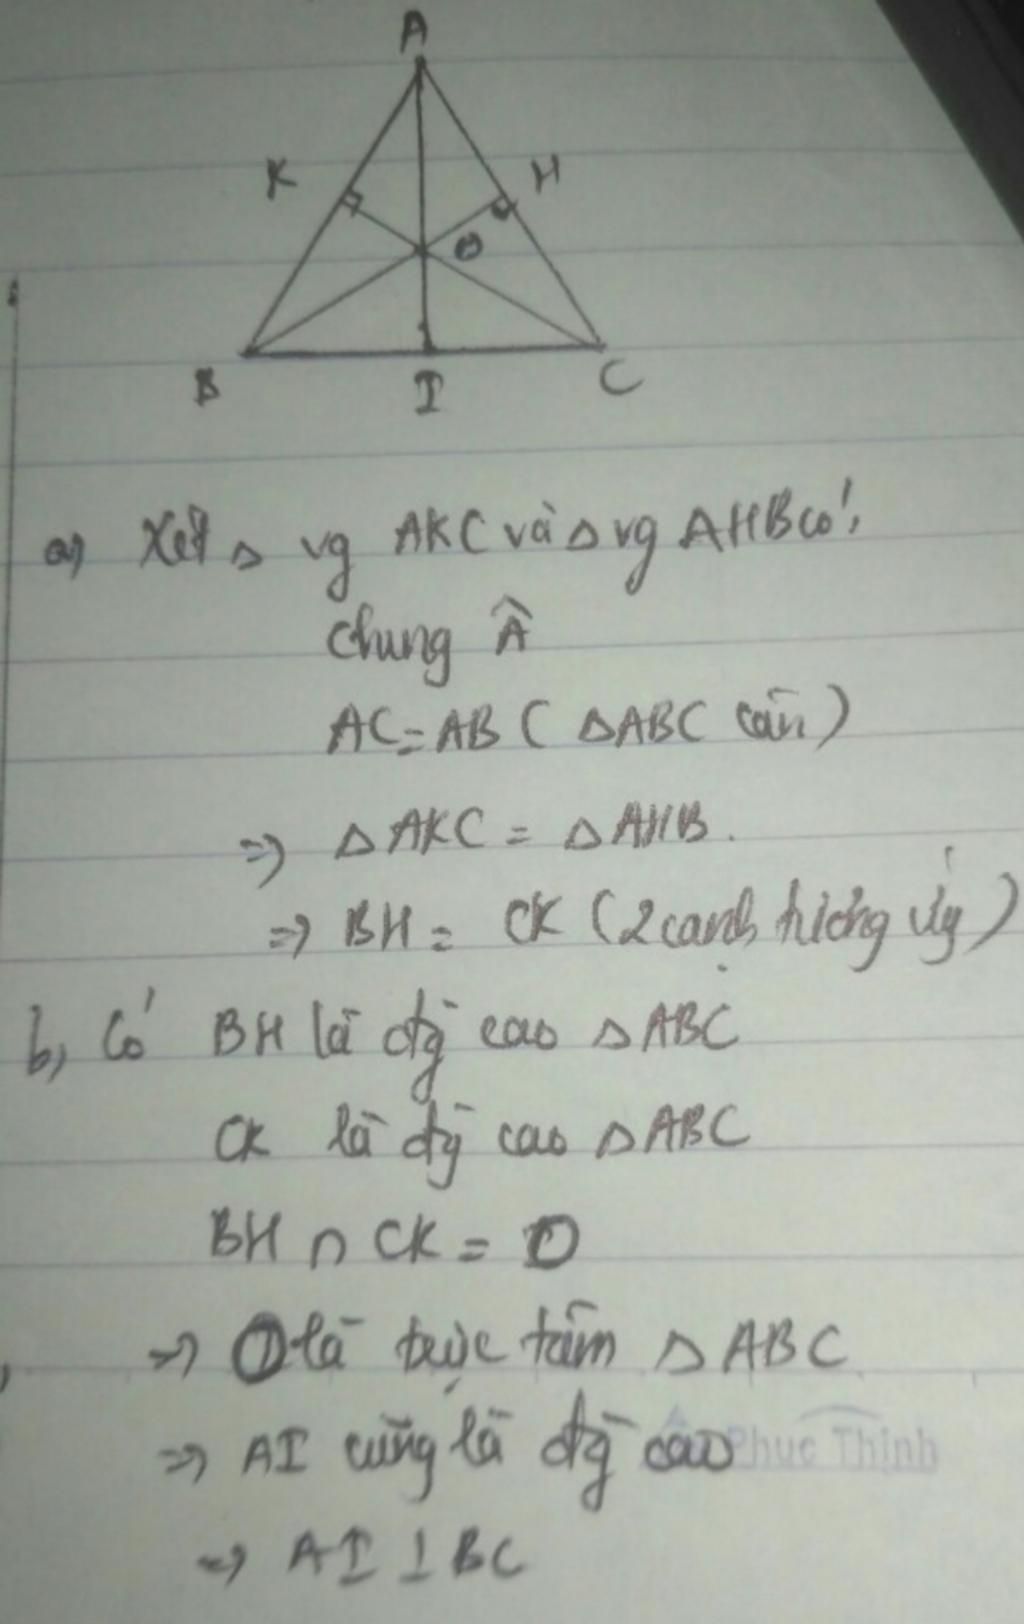 A
K
H
O
B
I
C
a) Xét Δ vg AKC và Δ vg AHB có:
Chung Â
AC = AB ( ΔABC cân )
=> ΔAKC = ΔAHB.
=> BH = CK ( 2 cạnh tương ứg )
b, Có BH là đg cao ΔABC
CK là đg cao ΔABC
BH ∩ CK = O
=> O là trực tâm ΔABC
=> AI cũng là đg cao
Phuc Thinh
=> AI ⊥ BC